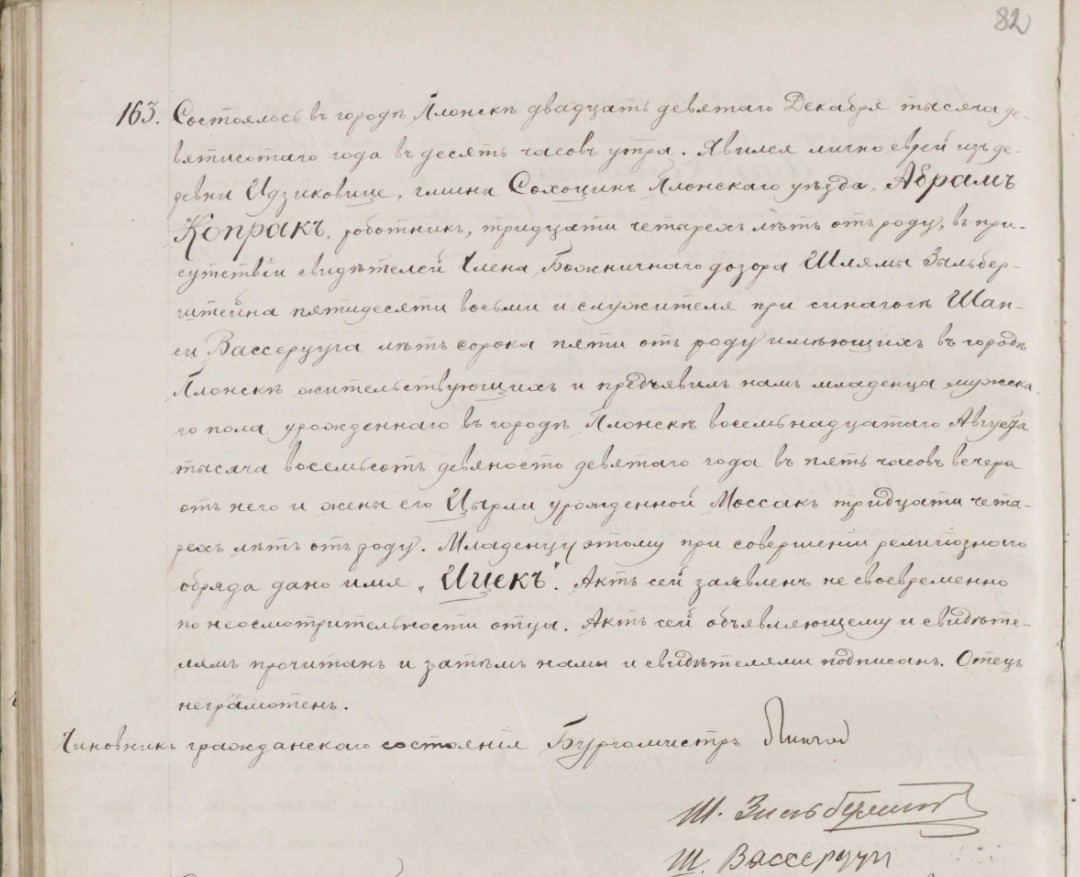 82
163. Состоялось въ городѣ Плонскѣ двадцать девятаго Декабря тысяча де-
вятисотаго года въ десять часовъ утра. Явился лично еврей изъ де-
ревни Идзиковице, гмина Сохоцинъ Плонскаго уѣзда, Абрамъ
Копракъ, роботникъ, тридцати четарехъ лѣтъ отъ роду, въ при-
сутствіи свидѣтелей Члена Божничнаго дозора Шлямы Зыльбер-
штейна пятидесяти восьми и служителя при синагогѣ Шап-
си Вассерцуга лѣтъ сорока пяти отъ роду имѣющихъ въ городѣ
Плонскѣ жительствующихъ и предъявилъ намъ младенца мужска-
го пола урожденнаго въ городѣ Плонскѣ восемьнадцатаго Августа
тысяча восемьсотъ девяносто девятаго года въ пять часовъ вечера
отъ него и жены его Цырли урожденной Моссакъ тридцати чета-
рехъ лѣтъ отъ роду. Младенцу этому при совершеніи религіознаго
обряда дано имя „Ицекъ“. Актъ сей заявленъ не своевременно
по неосмотрительности отца. Актъ сей объявляющему и свидѣте-
лямъ прочитанъ и затѣмъ нами и свидѣтелями подписанъ. Отецъ
неграмотенъ.
Чиновникъ гражданскаго состоянія Бургомистръ
Ш. Зильберштейн
Ш. Вассерцуг